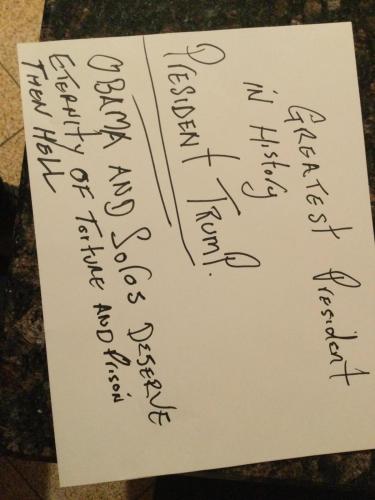 GREATEST President
in History
PRESIDENT TRUMP.
OBAMA AND SOROS DESERVE
ETERNITY OF TORTURE AND PRISON
THEN HELL